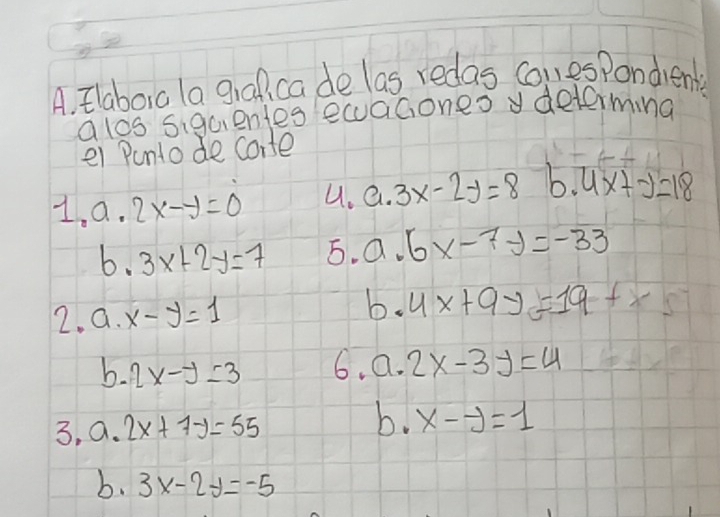 A. Elabora la grafica de las redas correspondiente
a los siguientes ecuaciones y determina
el Punto de corte
1. a. 2x-y=0
b. 3x+2y=7
2. a. x-y=1
b. 2x-y=3
3. a. 2x+7y=55
b. 3x-2y=-5
4. a. 3x-2y=8 b. 4x+y=18
5. a. 5x-7y=-33
b. 4x+9y=19
6. a. 2x-3y=4
b. x-y=1